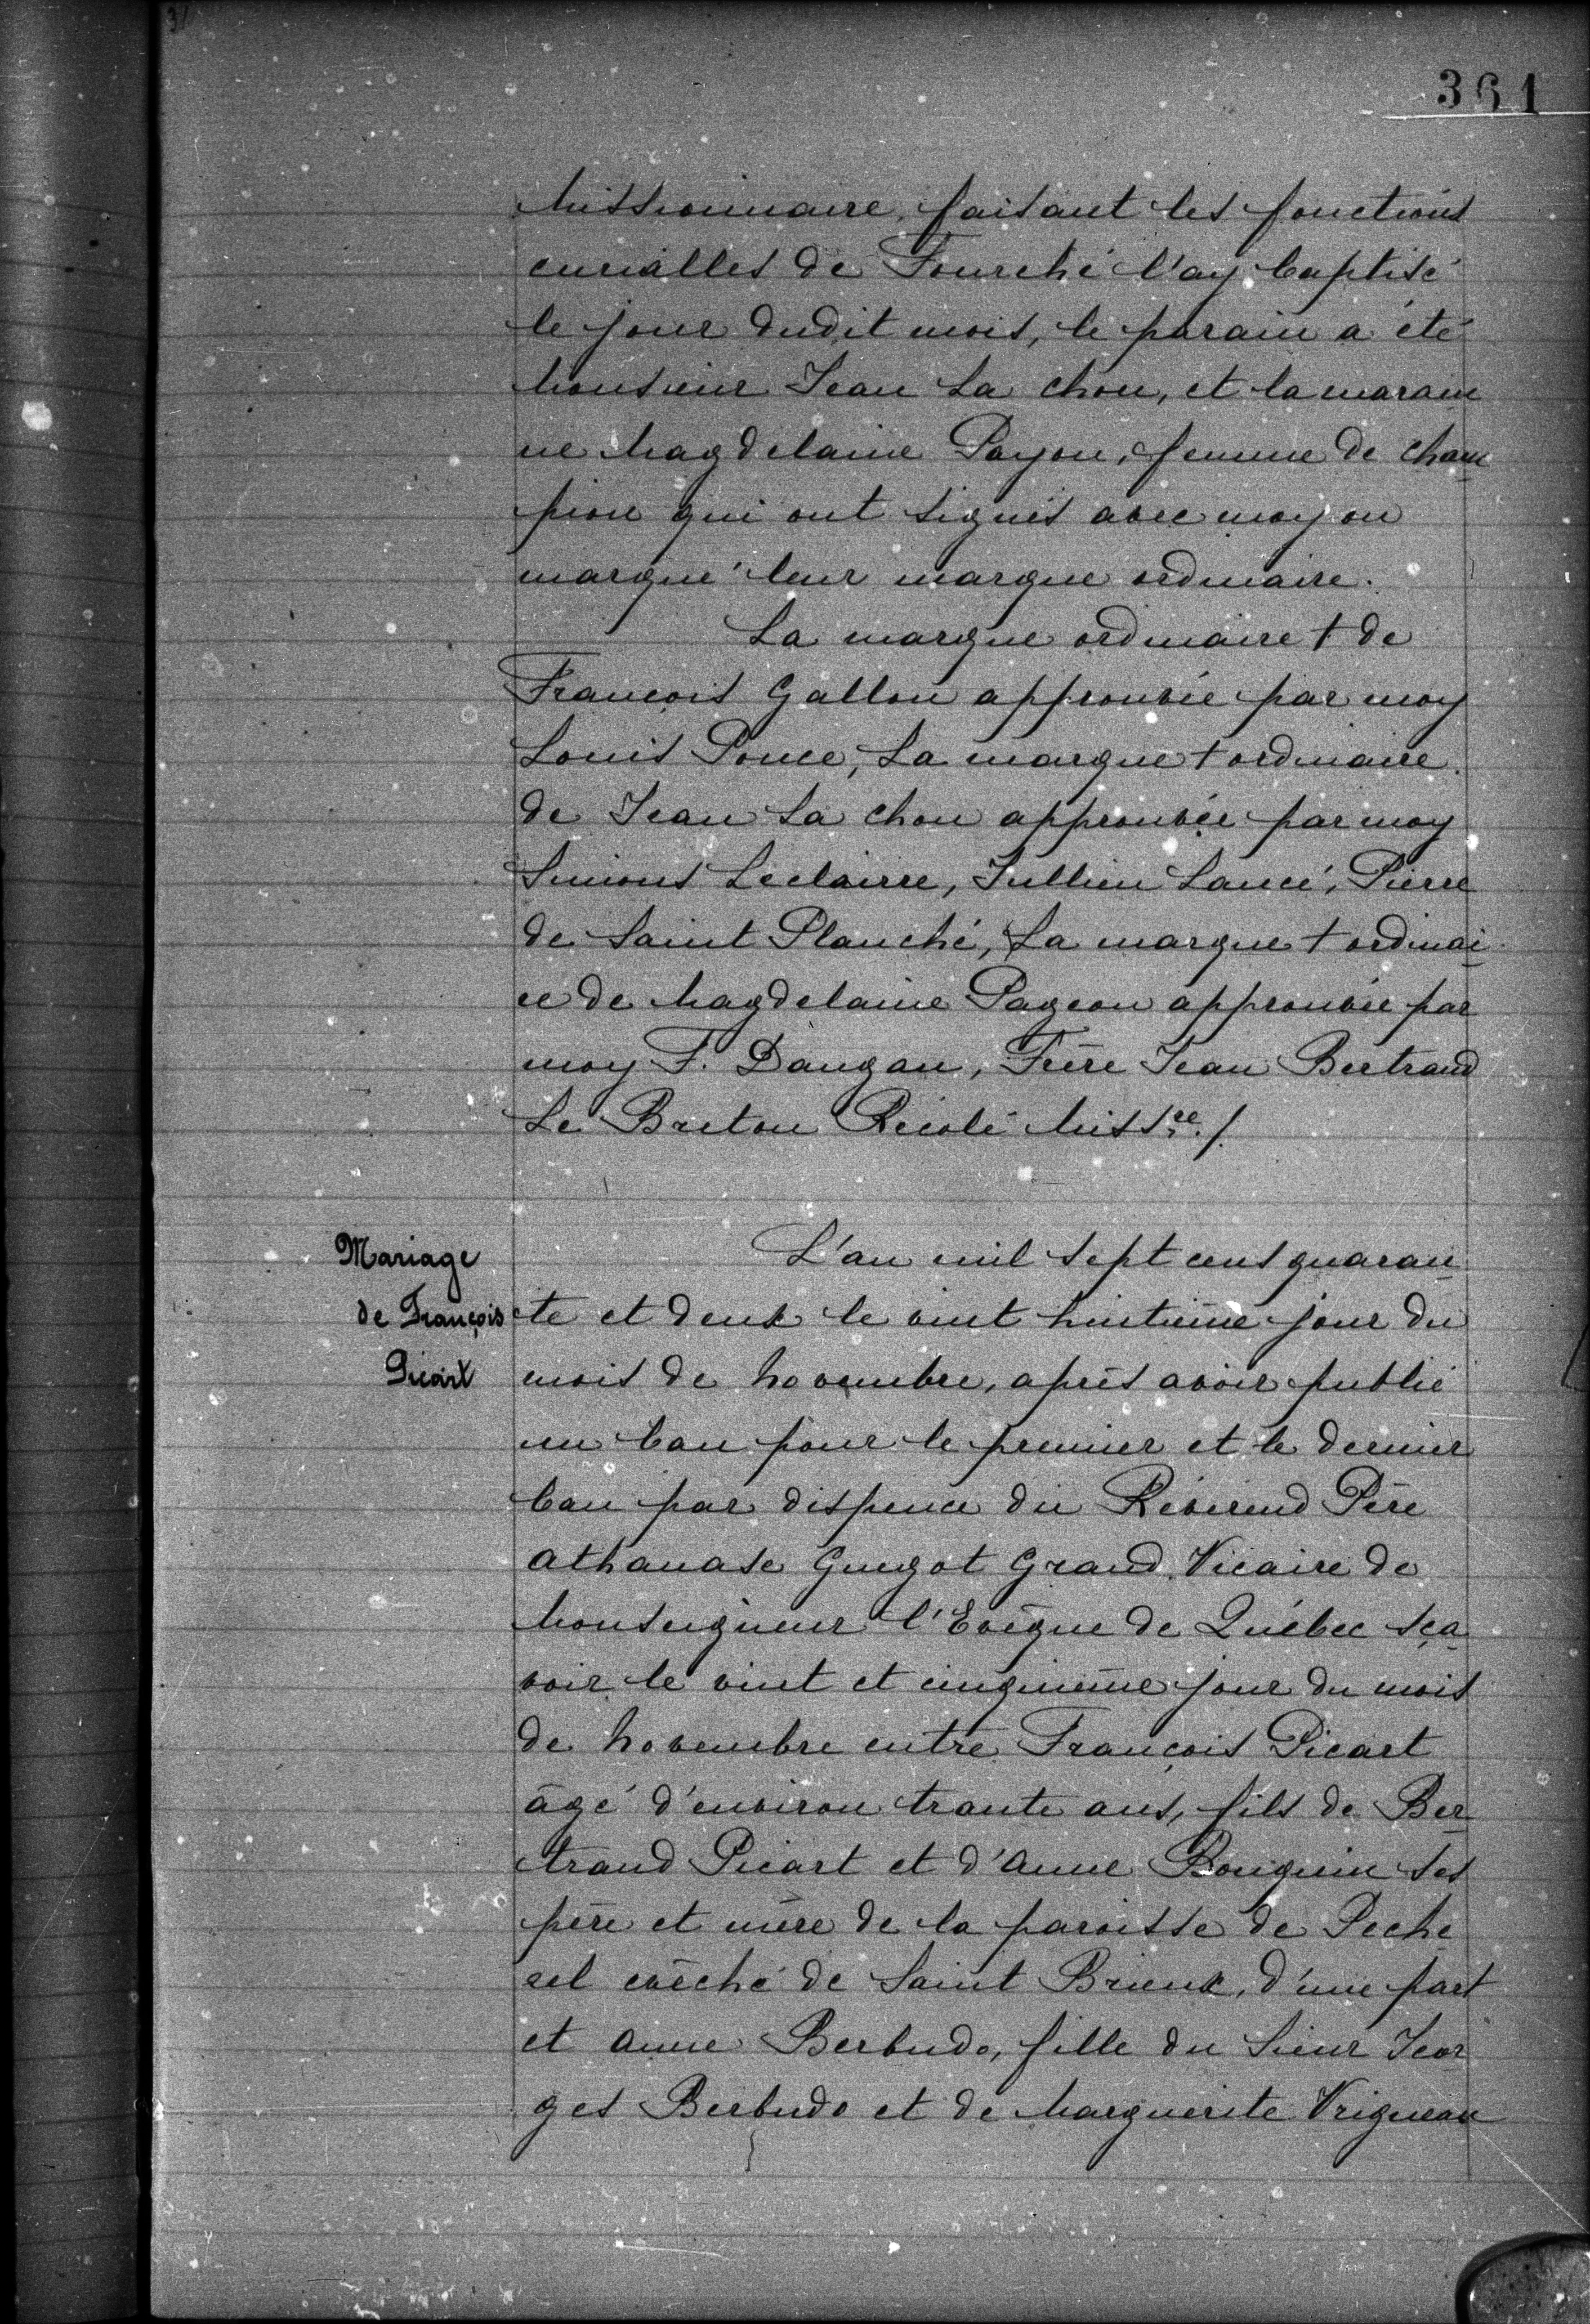 361
Missionnaire, faisant les fonctions
curialles de Fourché l'ay baptisé
le jour dudit mois, le parain a été
Monsieur Jean La chou, et la marain
ne Magdelaine Payou, femme de cham
pion qui ont signés avec moy ou
marqué leur marque ordinaire.
La marque ordinaire + de
François Gallou approuvée par moy
Louis Ponce, La marque + ordinaire
de Jean La chou approuvée par moy
Simons Leclairre, Jullien Lancé, Pierre
de Saint Planché, La marque + ordinai
re de Magdelaine Pageou approuvée par
moy F. Daugan, Frère Jean Bertrand
Le Breton Récolé Miss.re /.
Mariage
de François
Picart
L'an mil sept cens quaran
te et deux le vint huitième jour du
mois de Novembre, après avoir publié
un ban pour le premier et le dernier
ban par dispence du Révérend Père
Athanase Guegot Grand Vicaire de
Monseigneur l'Evêque de Québec sça
voir le vint et cinquième jour du mois
de Novembre entre François Picart
âgé d'environ trante ans, fils de Ber
trand Picart et d'Anne Bouguin ses
père et mère de la paroisse de Peche
rel evêché de Saint Brieux, d'une part
et Anne Berbudo, fille du Sieur Jeor
ges Berbudo et de Marguerite Vrigneau